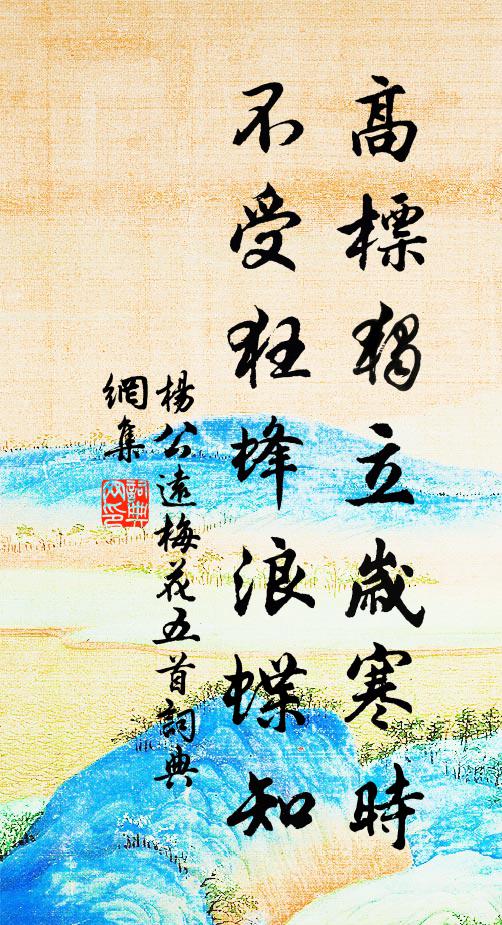 高標獨立歲寒時
不受狂蜂浪蝶知
楊公遠梅花五首詞典
網集